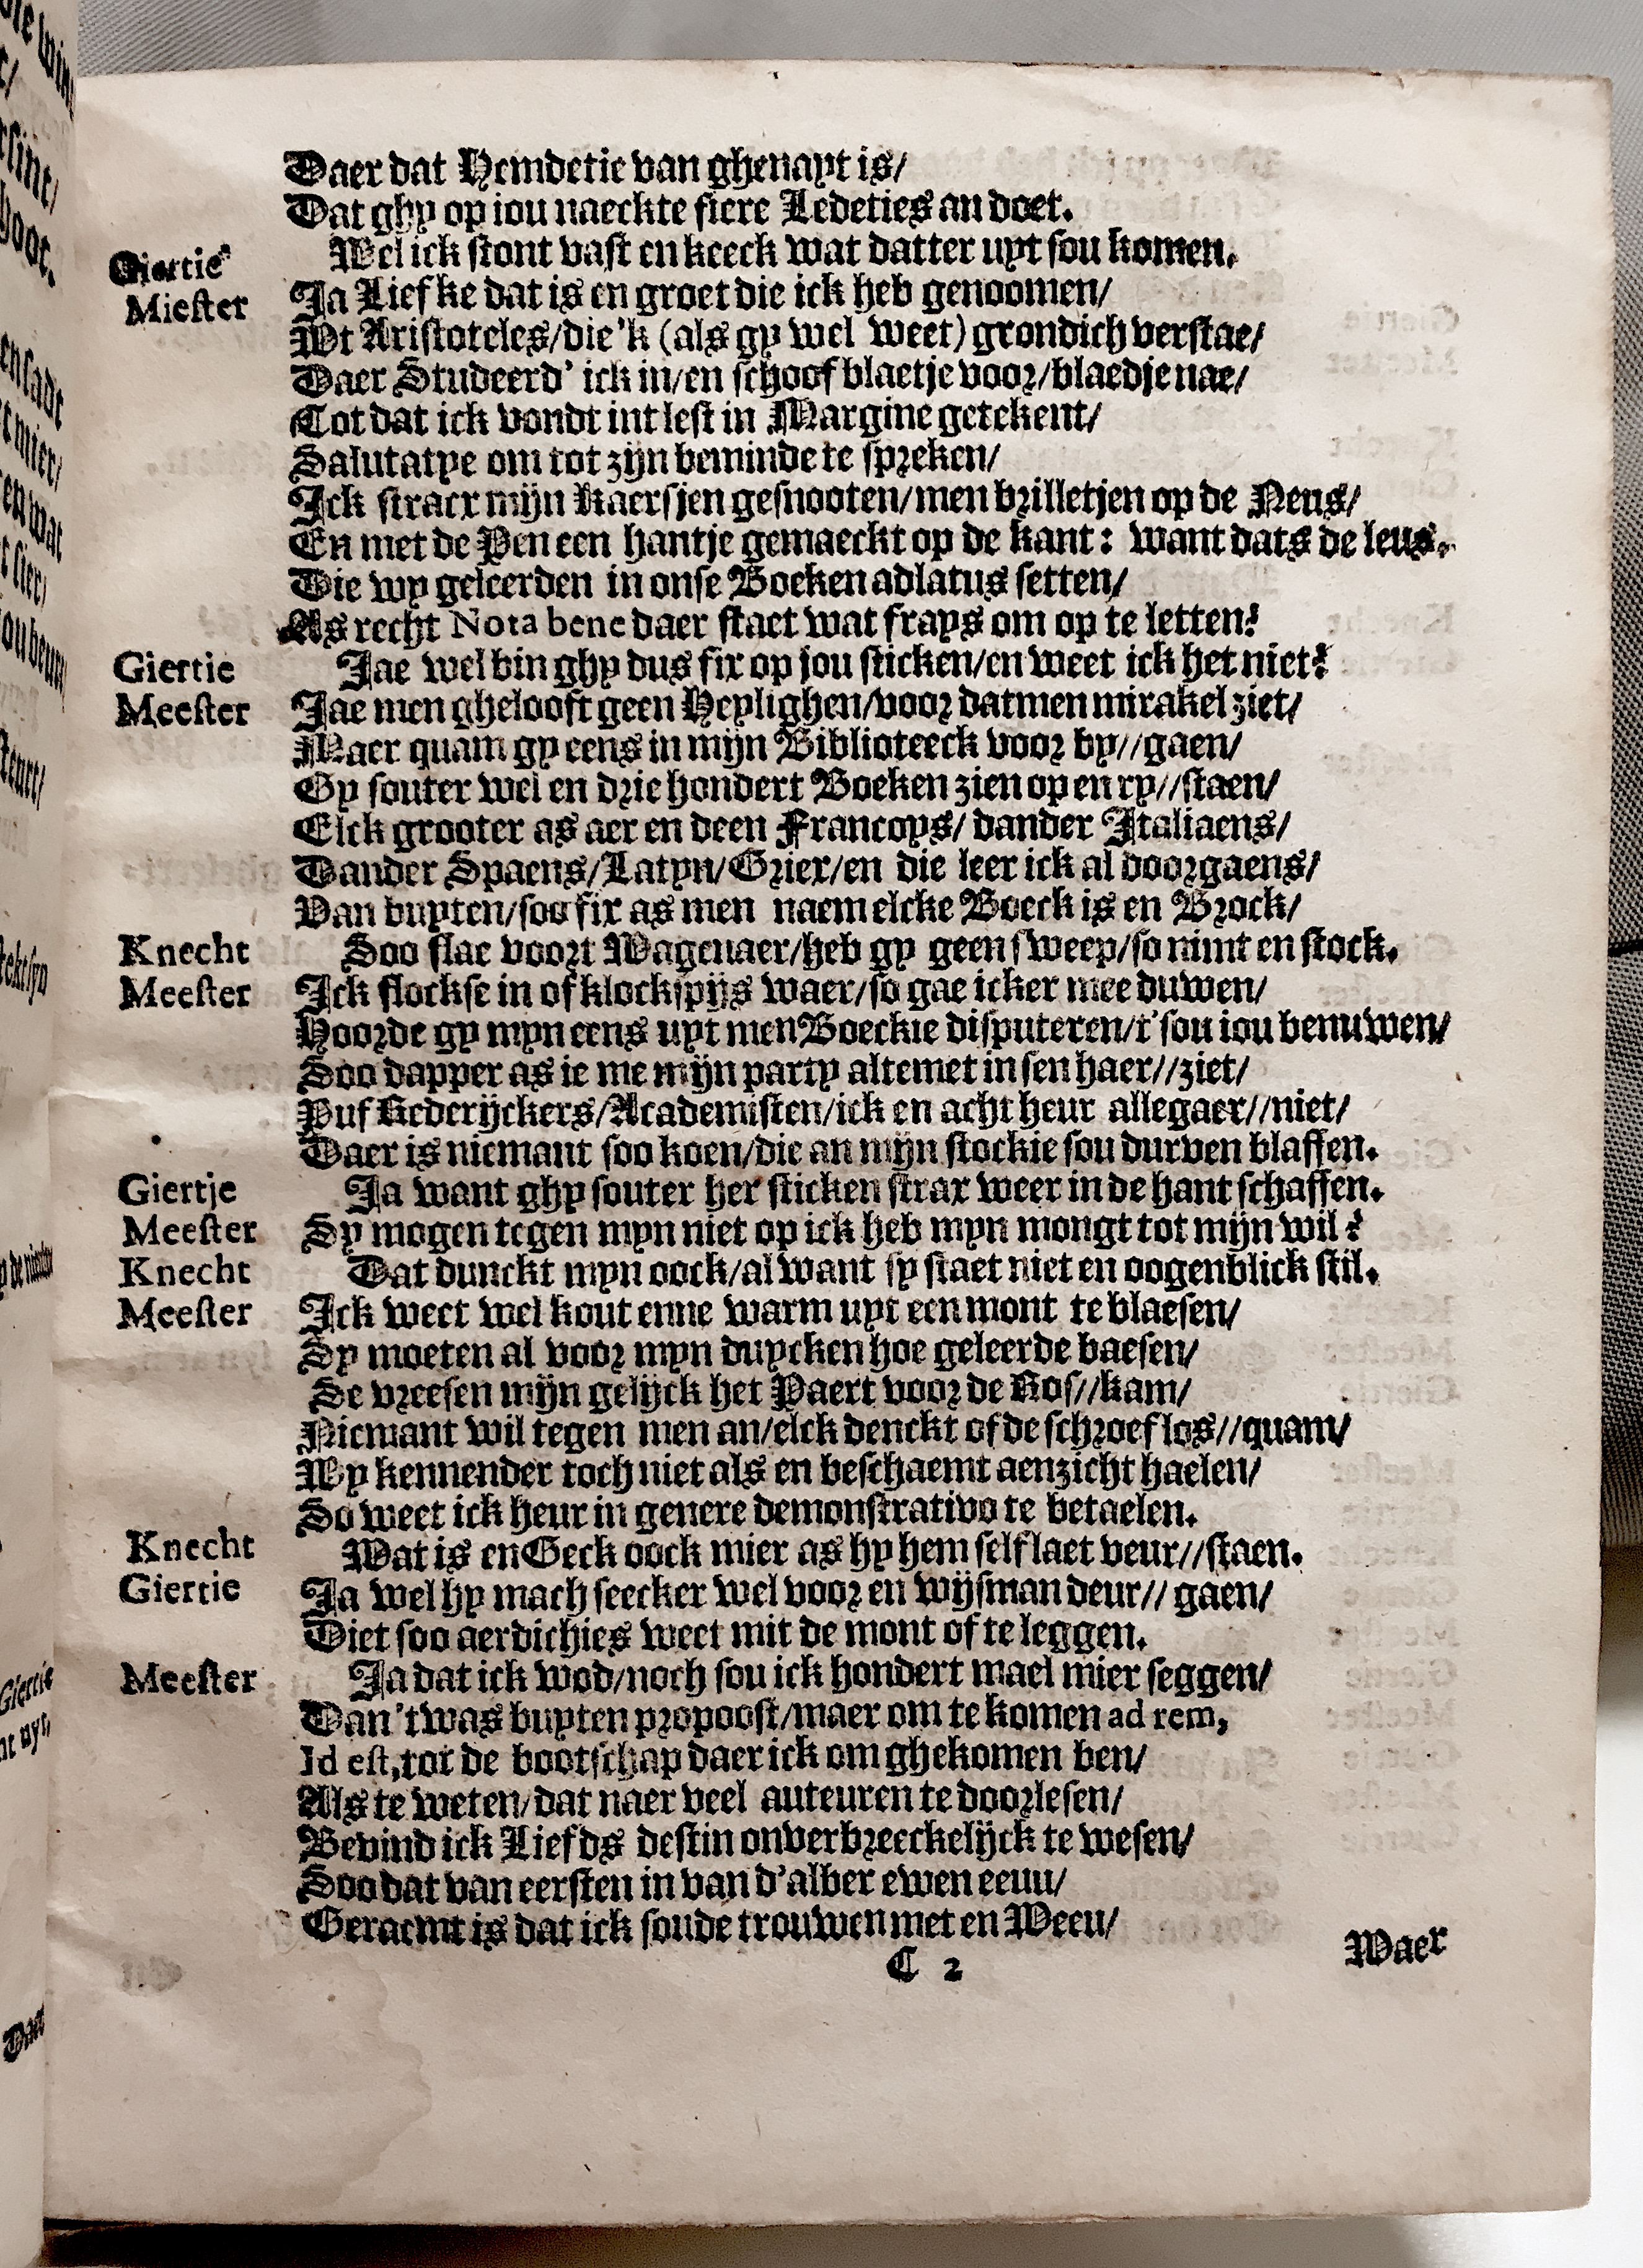 Daer dat Hemdetie van ghenayt is/
Dat ghy op iou naeckte fiere Ledeties an doet.
Giertie Wel ick stont vast en keeck wat datter uyt sou komen.
Miester Ja Liefke dat is en groet die ick heb genoomen/
Wt Aristoteles/die'k (als gy wel weet) grondich verstae/
Daer Studeerd' ick in/en schoof blaetje voor/blaedje nae/
Tot dat ick vondt int lest in Margine getekent/
Salutatye om tot zijn beminde te spreken/
Ick stracx mijn Kaersjen gesnooten/men brilletjen op de Neus/
En met de Pen een hantje gemaeckt op de kant: want dats de leus.
Die wy geleerden in onse Boeken adlatus setten/
As recht Nota bene daer staet wat frays om op te letten!
Giertie Jae wel bin ghy dus fix op jou sticken/en weet ick het niet?
Meester Jae men ghelooft geen Heylighen/voor datmen mirakel ziet/
Maer quam gy eens in mijn Biblioteeck voor by//gaen/
Gy souter wel en drie hondert Boeken zien op en ry//staen/
Elck grooter as aer en deen Francoys/dander Italiaens/
Dander Spaens/Latyn/Griex/en die leer ick al doorgaens/
Van buyten/soo fix as men naem elcke Boeck is en Brock/
Knecht Soo slae voort Wagenaer/heb gy geen sweep/so nimt en stock.
Meester Ick slockse in of klockspijs waer/so gae icker mee duwen/
Hoorde gy myn eens uyt men Boeckie disputeren/t'sou iou benuwen/
Soo dapper as ie me mijn party altemet in sen haer//ziet/
Puf Rederijckers/Academisten/ick en acht heur allegaer//niet/
Daer is niemant soo koen/die an mijn stockie sou durven blaffen.
Giertje Ja want ghy souter her sticken strax weer in de hant schaffen.
Meester Sy mogen tegen myn niet op ick heb myn mongt tot mijn wil?
Knecht Dat dunckt myn oock/al want sy staet niet en oogenblick stil.
Meester Ick weet wel kout enne warm uyt een mont te blaesen/
Sy moeten al voor myn duycken hoe geleerde baesen/
Se vreesen mijn gelijck het Paert voor de Ros//kam/
Niemant wil tegen men an/elck denckt of de schroef los//quam/
Wy kennender toch niet als en beschaemt aenzicht haelen/
So weet ick heur in genere demonstrativo te betaelen.
Knecht Wat is en Geck oock mier as hy hem self laet veur//staen.
Giertie Ja wel hy mach seecker wel voor en wijsman deur//gaen/
Diet soo aerdichies weet mit de mont of te leggen.
Meester Ja dat ick wod/noch sou ick hondert mael mier seggen/
Dan't was buyten propoost/maer om te komen ad rem,
Id est, tot de bootschap daer ick om ghekomen ben/
Als te weten/dat naer veel auteuren te doorlesen/
Bevind ick Liefds destin onverbreeckelijck te wesen/
Soo dat van eersten in van d'alber ewen eeuu/
Geraemt is dat ick soude trouwen met en Weeu/
C 2
Waer